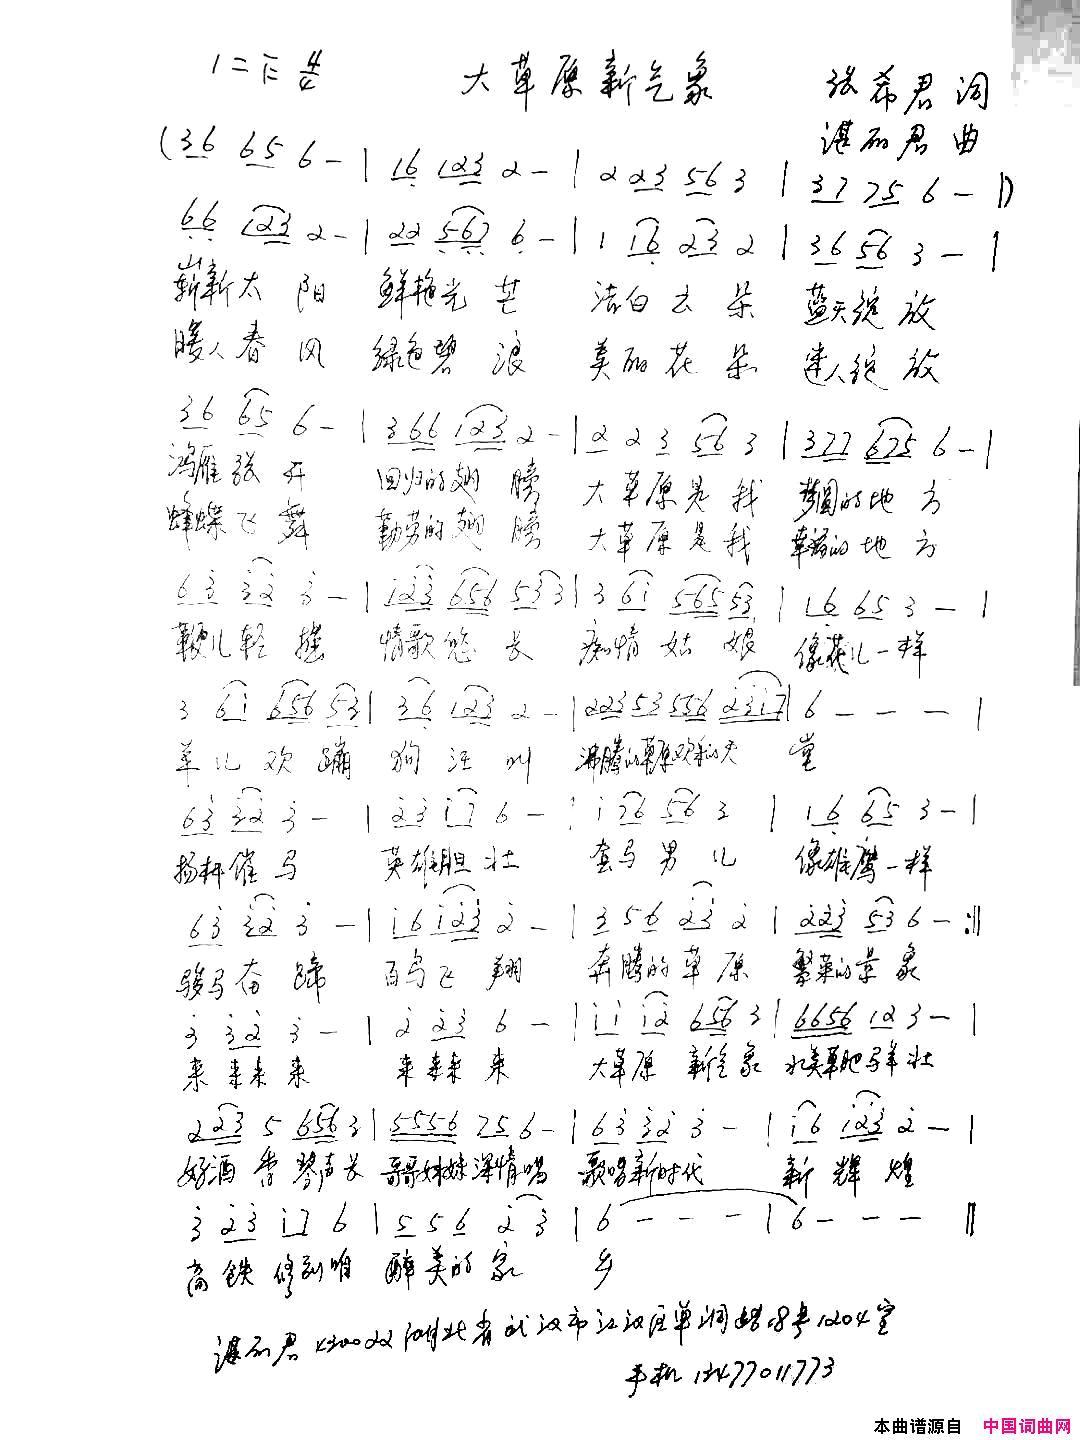 1=F 4/4 大草原新气象 张希君词
湛丽君曲
(36 65 6 - | 16 123 2 - | 2 23 56 3 | 37 75 6 - |)
66 123 2 - | 22 567 6 - | 1 16 23 2 | 36 56 3 - |
崭新太阳 鲜艳光芒 洁白云朵 蓝天绽放
暖人春风 绿色碧浪 美丽花朵 迷人绽放
36 65 6 - | 366 123 2 - | 2 2 3 56 3 | 377 675 6 - |
鸿雁张开 回归的翅膀 大草原是我 梦圆的地方
蜂蝶飞舞 勤劳的翅膀 大草原是我 幸福的地方
63 32 3 - | 123 656 533 | 3 61 56553 | 16 65 3 - |
鞭儿轻摇 情歌悠长 痴情姑娘 像花儿一样
3 61 656 53 | 36 123 2 - | 223 53 556 2317 | 6 - - - |
羊儿欢蹦 狗汪叫 沸腾的草原欢乐的天堂
63 32 3 - | 23 17 6 - | 176 56 3 | 16 65 3 - |
扬鞭催马 英雄胆壮 套马男儿 像雄鹰一样
63 32 3 - | 16 123 2 - | 3 5 6 23 2 | 223 53 6 - :||
骏马奋蹄 百鸟飞翔 奔腾的草原 繁荣的景象
3 32 3 - | 2 23 6 - | 11 12 656 3 | 6656 12 3 - |
来来来来 来来来来 大草原 新气象 水美草肥马羊壮
223 5 656 3 | 5556 75 6 - | 63 32 3 - | 16 123 2 - |
好酒香琴声长 哥哥妹妹深情唱 歌唱新时代 新辉煌
3 23 17 6 | 5 5 6 2 3 | 6 - - - | 6 - - - ||
高铁修到咱 醉美的家乡
湛丽君 430022 湖北省武汉市江汉区单洞路 号1204室
手机 13477011773
本曲谱源自 中国词曲网